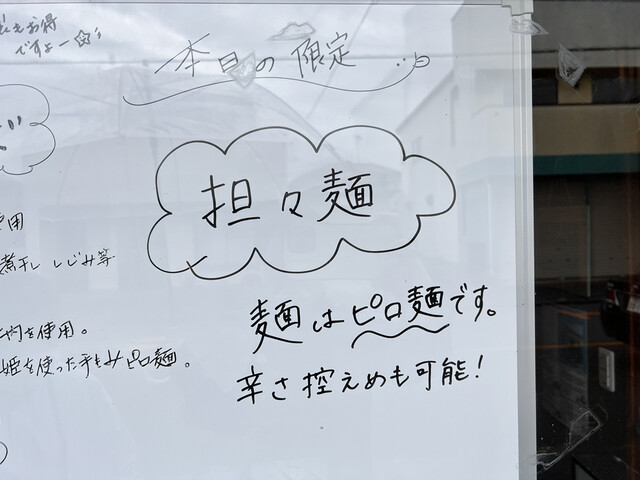 お得
ですよー☆
本日の限定
担々麺
使用
煮干し しじみ等
肉を使用。
姫を使った手もみピロ麺。
麺はピロ麺です。
辛さ控えめも可能!